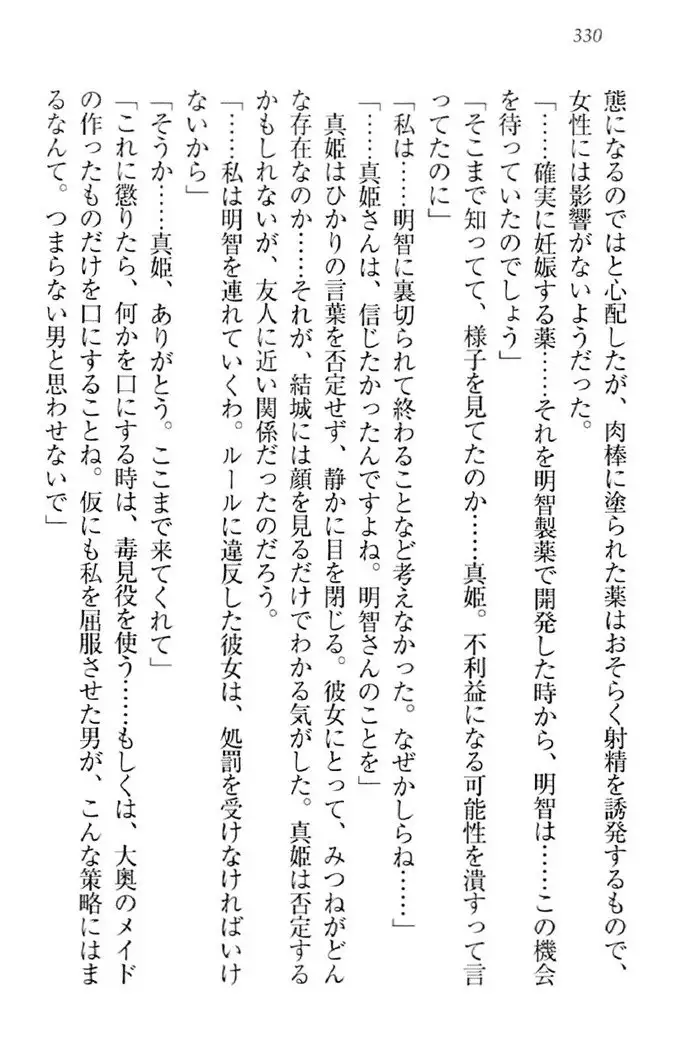 330
態になるのではと心配したが、肉棒に塗られた薬はおそらく射精を誘発するもので、
女性には影響がないようだった。
「……確実に妊娠する薬……それを明智製薬で開発した時から、明智は……この機会
を待っていたのでしょう」
「そこまで知ってて、様子を見てたのか……真姫。不利益になる可能性を潰すって言
ってたのに」
「私は……明智に裏切られて終わることなど考えなかった。なぜかしらね……」
「……真姫さんは、信じたかったんですよね。明智さんのことを」
真姫はひかりの言葉を否定せず、静かに目を閉じる。彼女にとって、みつねがどん
な存在なのか……それが、結城には顔を見るだけでわかる気がした。真姫は否定する
かもしれないが、友人に近い関係だったのだろう。
「……私は明智を連れていくわ。ルールに違反した彼女は、処罰を受けなければいけ
ないから」
「そうか……真姫、ありがとう。ここまで来てくれて」
「これに懲りたら、何かを口にする時は、毒見役を使う……もしくは、大奥のメイド
の作ったものだけを口にすることね。仮にも私を屈服させた男が、こんな策略にはま
るなんて。つまらない男と思わせないで」